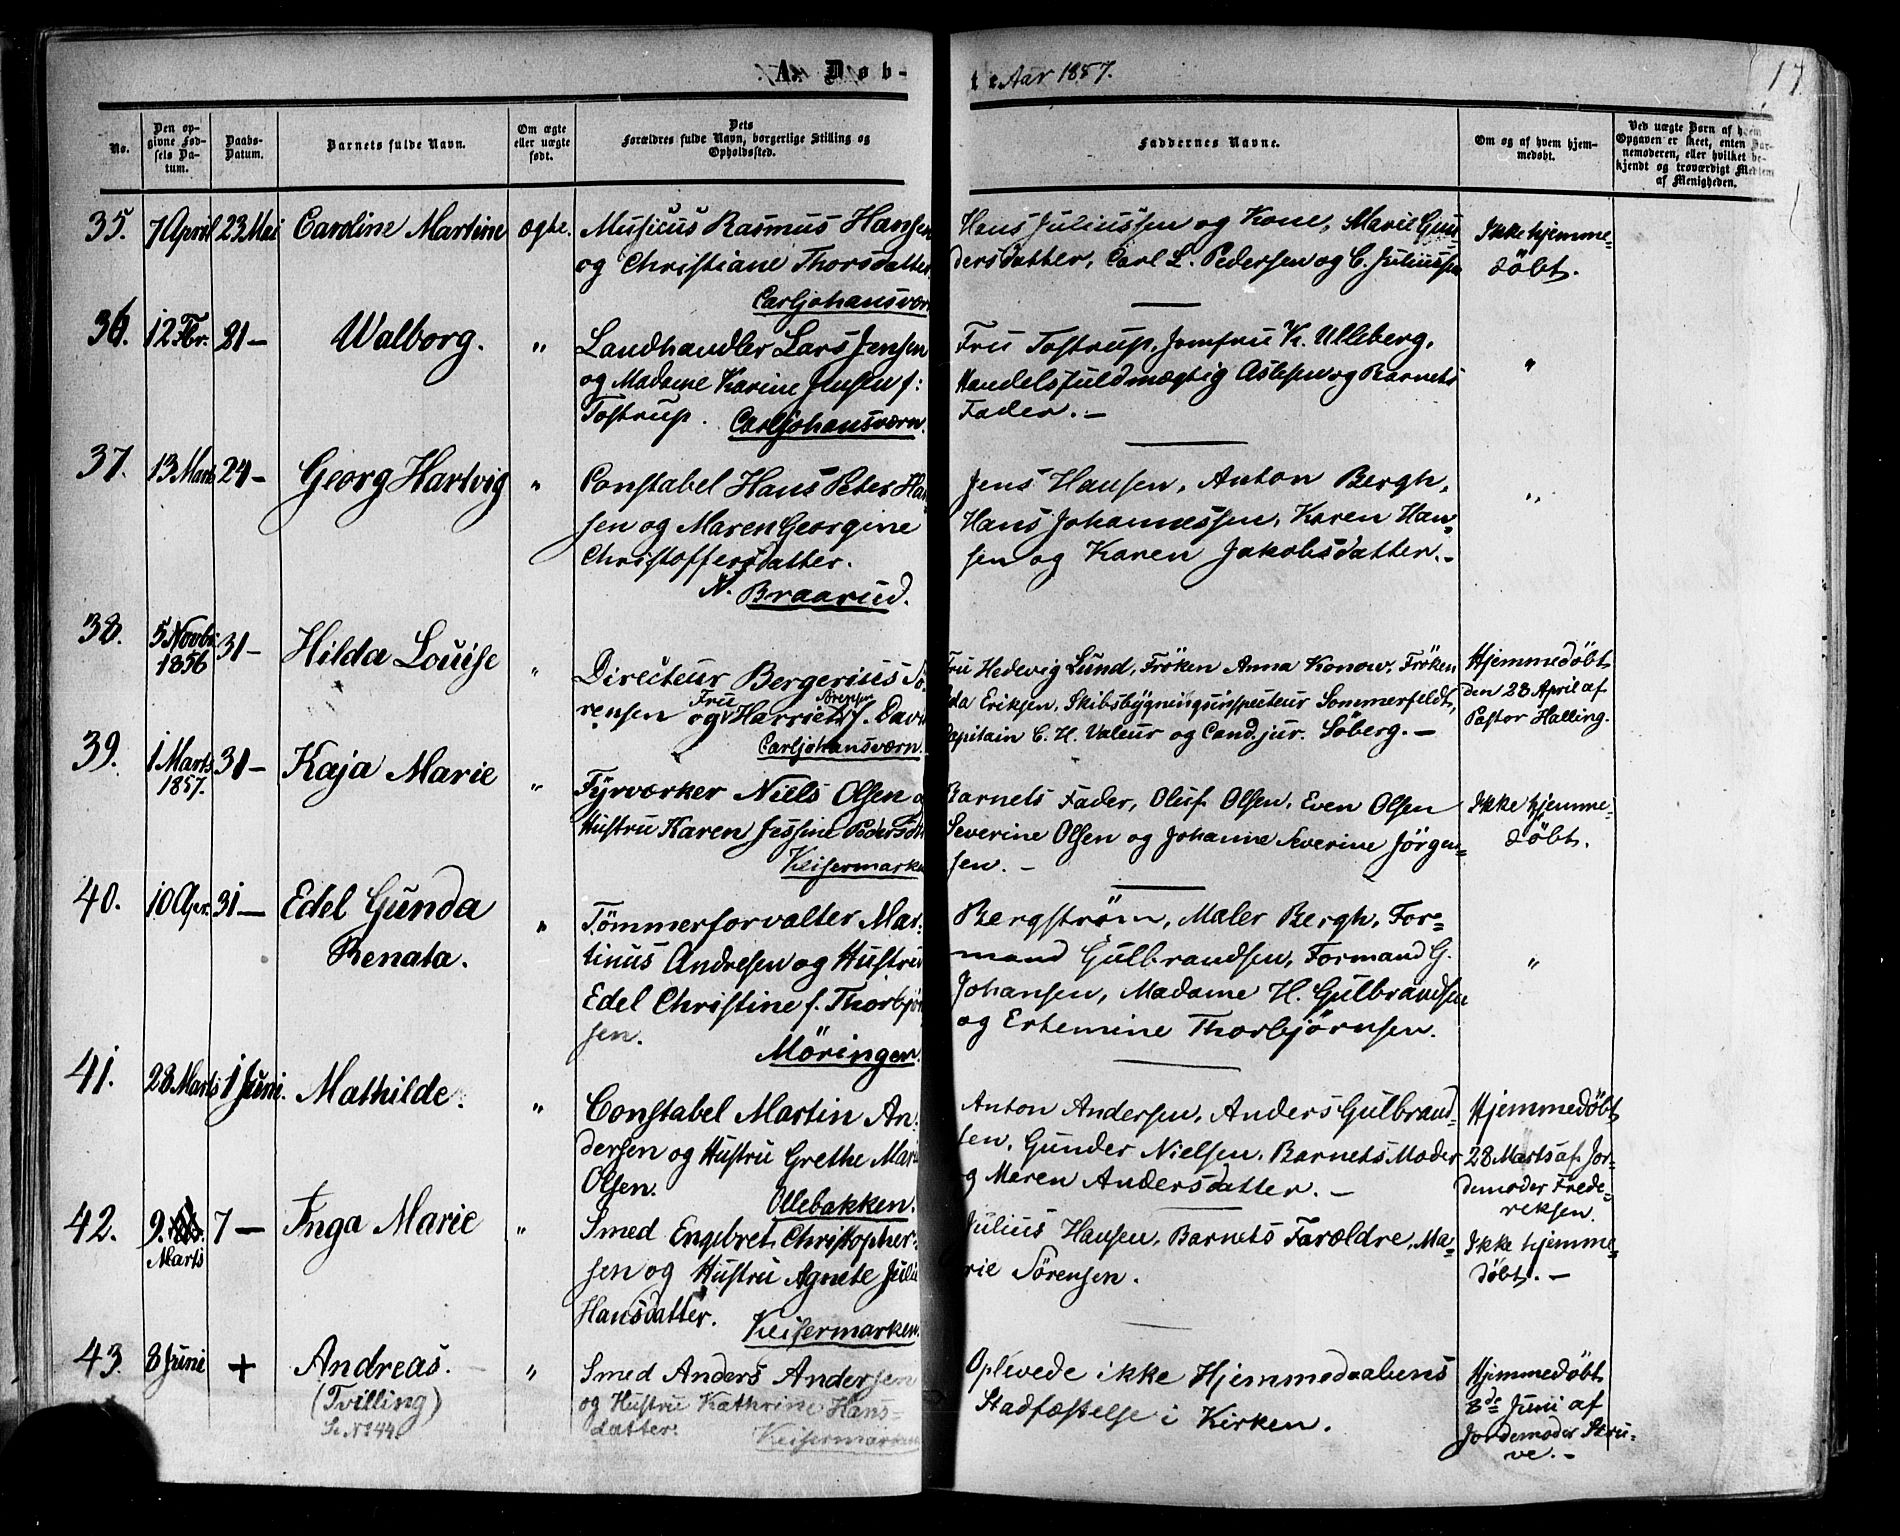 A. Døb-
te Aar 1857.
17
No.
Den op-
givne Fød-
sels Da-
tum.
Daabs-
Datum.
Barnets fulde Navn.
Om ægte
eller uægte
født.
Dets
Forældres fulde Navn, borgerlige Stilling og
Opholdssted.
Faddernes Navne.
Om og af hvem hjem-
medøbt.
Ved uægte Børn af hvem
Opgaven er skeet, enten Bar-
nemoderen, eller hvilket be-
kjendt og troværdigt Medlem
af Menigheden.
35.
7 April
23 Mai
Caroline Martine
ægte.
Musicus Rasmus Hansen
og Christiane Thorsdatter
Carljohansværn
Hans Juliussen og Kone, Marie Gun-
dersdatter, Carl L. Pedersen og C. Juliussen
Ikke hjemme-
døbt.
36.
12 Fbr.
21 –
Walborg.
"
Landhandler Lars Jensen
og Madame Karine Jensen f:
Tostrup. Carljohansværn.
Fru Tostrup, Jomfru K. Ulleberg,
Handelsfuldmægtig Aslesen og Barnets
Fader. –
"
37.
13 Marts
24 –
Georg Hartvig
"
Constabel Hans Peter Han-
sen og Maren Georgine
Christoffersdatter.
N. Braarud.
Jens Hansen, Anton Bergh,
Hans Johannessen, Karen Han-
sen og Karen Jakobsdatter. –
"
38.
5 Novbr
1856
31 –
Hilda Louise
"
Directeur Bergerius Sö-
rensen og Fru Harriet Sörensen f. Davi
Carljohansværn.
Fru Hedevig Lund, Fröken Anna Konow, Fröken
Ida Eriksen, Skibsbygningsinspecteur Sommerfeldt,
Capitain C. H. Valeur og Cand. jur. Söberg. –
Hjemmedöbt
den 28 April af
Pastor Halling.
39.
1 Marts
1857.
31 –
Kaja Marie
"
Fyrværker Niels Olsen og
Hustru Karen Jessine Pedersdt
Keisermarken
Barnets Fader, Oluf Olsen, Even Olsen
Severine Olsen og Johanne Severine Jörgen-
sen. –
Ikke hjemme-
döbt.
40.
10 Apr.
31 –
Edel Gunda
Renata.
"
Tömmerforvalter Mar-
tinus Andresen og Hustru
Edel Christine f. Thorbjörn
sen. Möringen.
Bergström, Maler Bergh, For-
mand Gulbrandsen, Formand G.
Johansen, Madame H. Gulbrandsen
og Ertemine Thorbjörnsen.
"
41.
28 Marts
1 Juni.
Mathilde.
"
Constabel Martin An-
dersen og Hustru Grethe Marie
Olsen. Ollebakken.
Anton Andersen, Anders Gulbrand-
sen, Gunder Nielsen, Barnets Moder
og Maren Andersdatter. –
Hjemmedöbt
28 Marts af Jor-
demoder Frede-
riksen.
42.
9.
Marts
7 –
Inga Marie
"
Smed Engebret Christopher-
sen og Hustru Agnete Julie
Hansdatter. Keisermarken.
Julius Hansen, Barnets Forældre, Ma-
rie Sörensen.
Ikke hjemme-
döbt. –
43.
8 Juni
+
Andreas.
(Tvilling)
Se No 44.
"
Smed Anders Andersen
og Hustru Kathrine Hans-
datter. Keisermarken
Oplevede ikke Hjemmedaabens
Stadfæstelse i Kirken.
Hjemmedöbt
8de Juni af
Jordemoder Skru-
ve. –